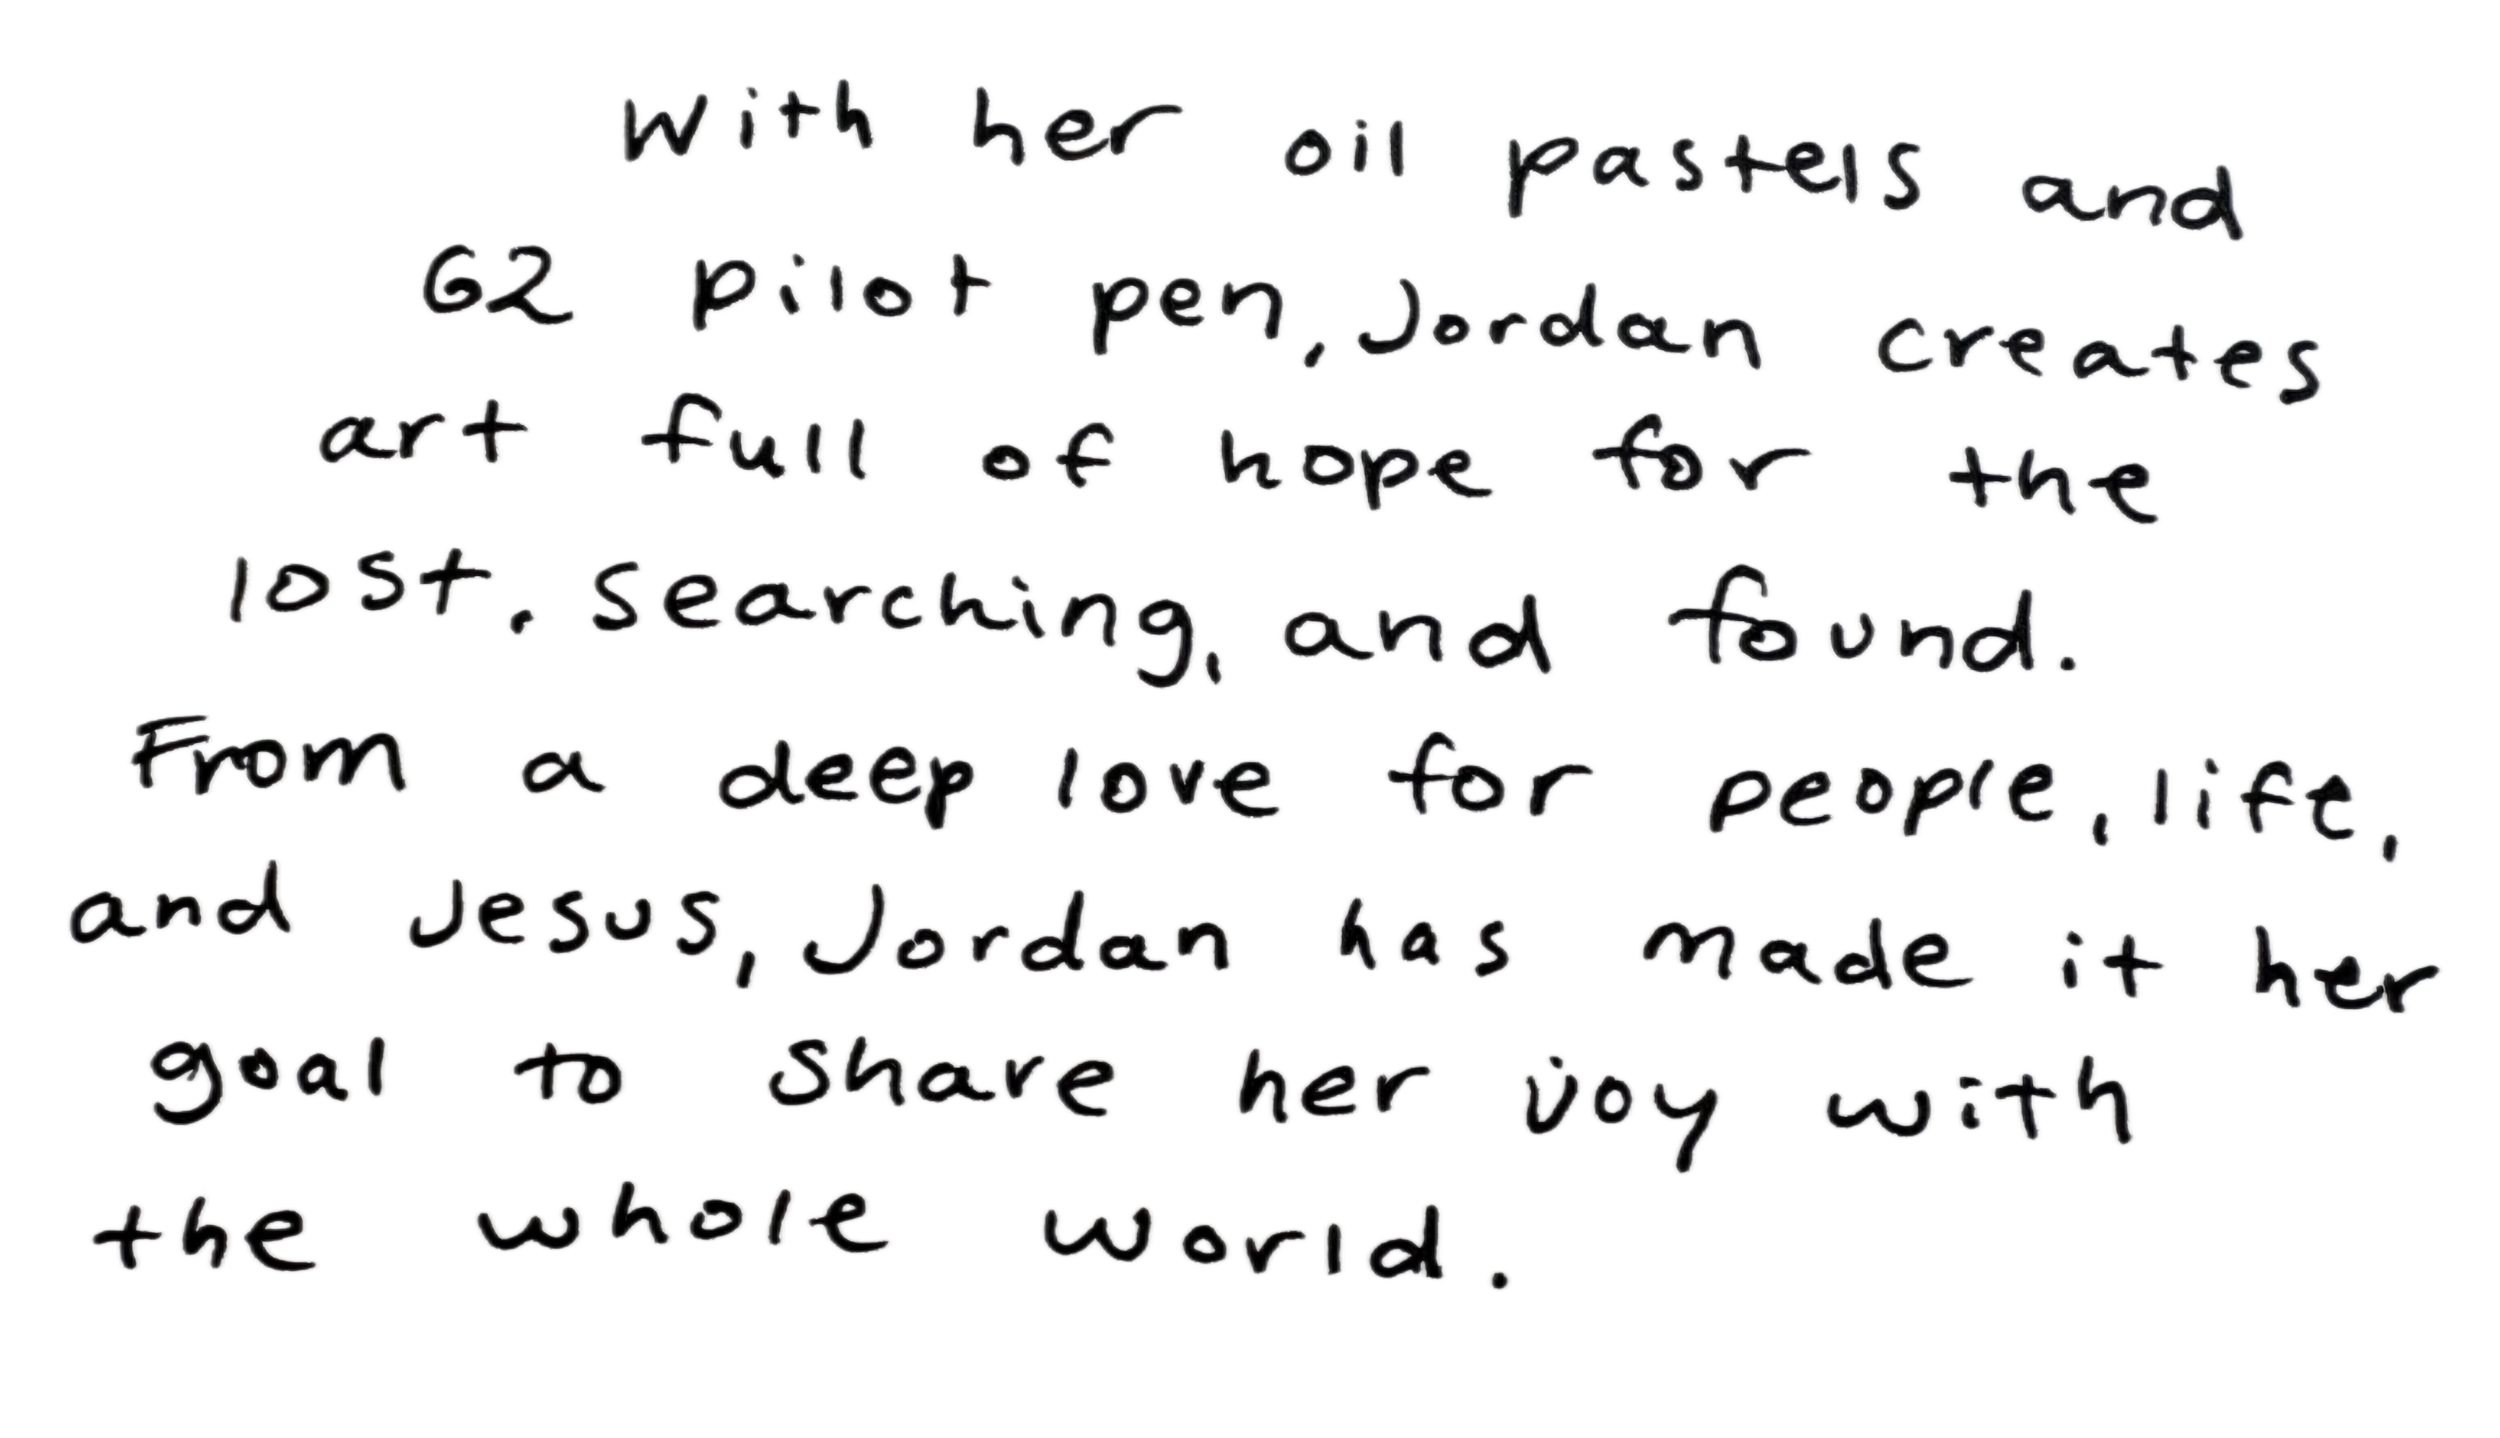 With her oil pastels and
G2 pilot pen, Jordan creates
art full of hope for the
lost, searching, and found.
From a deep love for people, life,
and Jesus, Jordan has made it her
goal to share her joy with
the whole world.